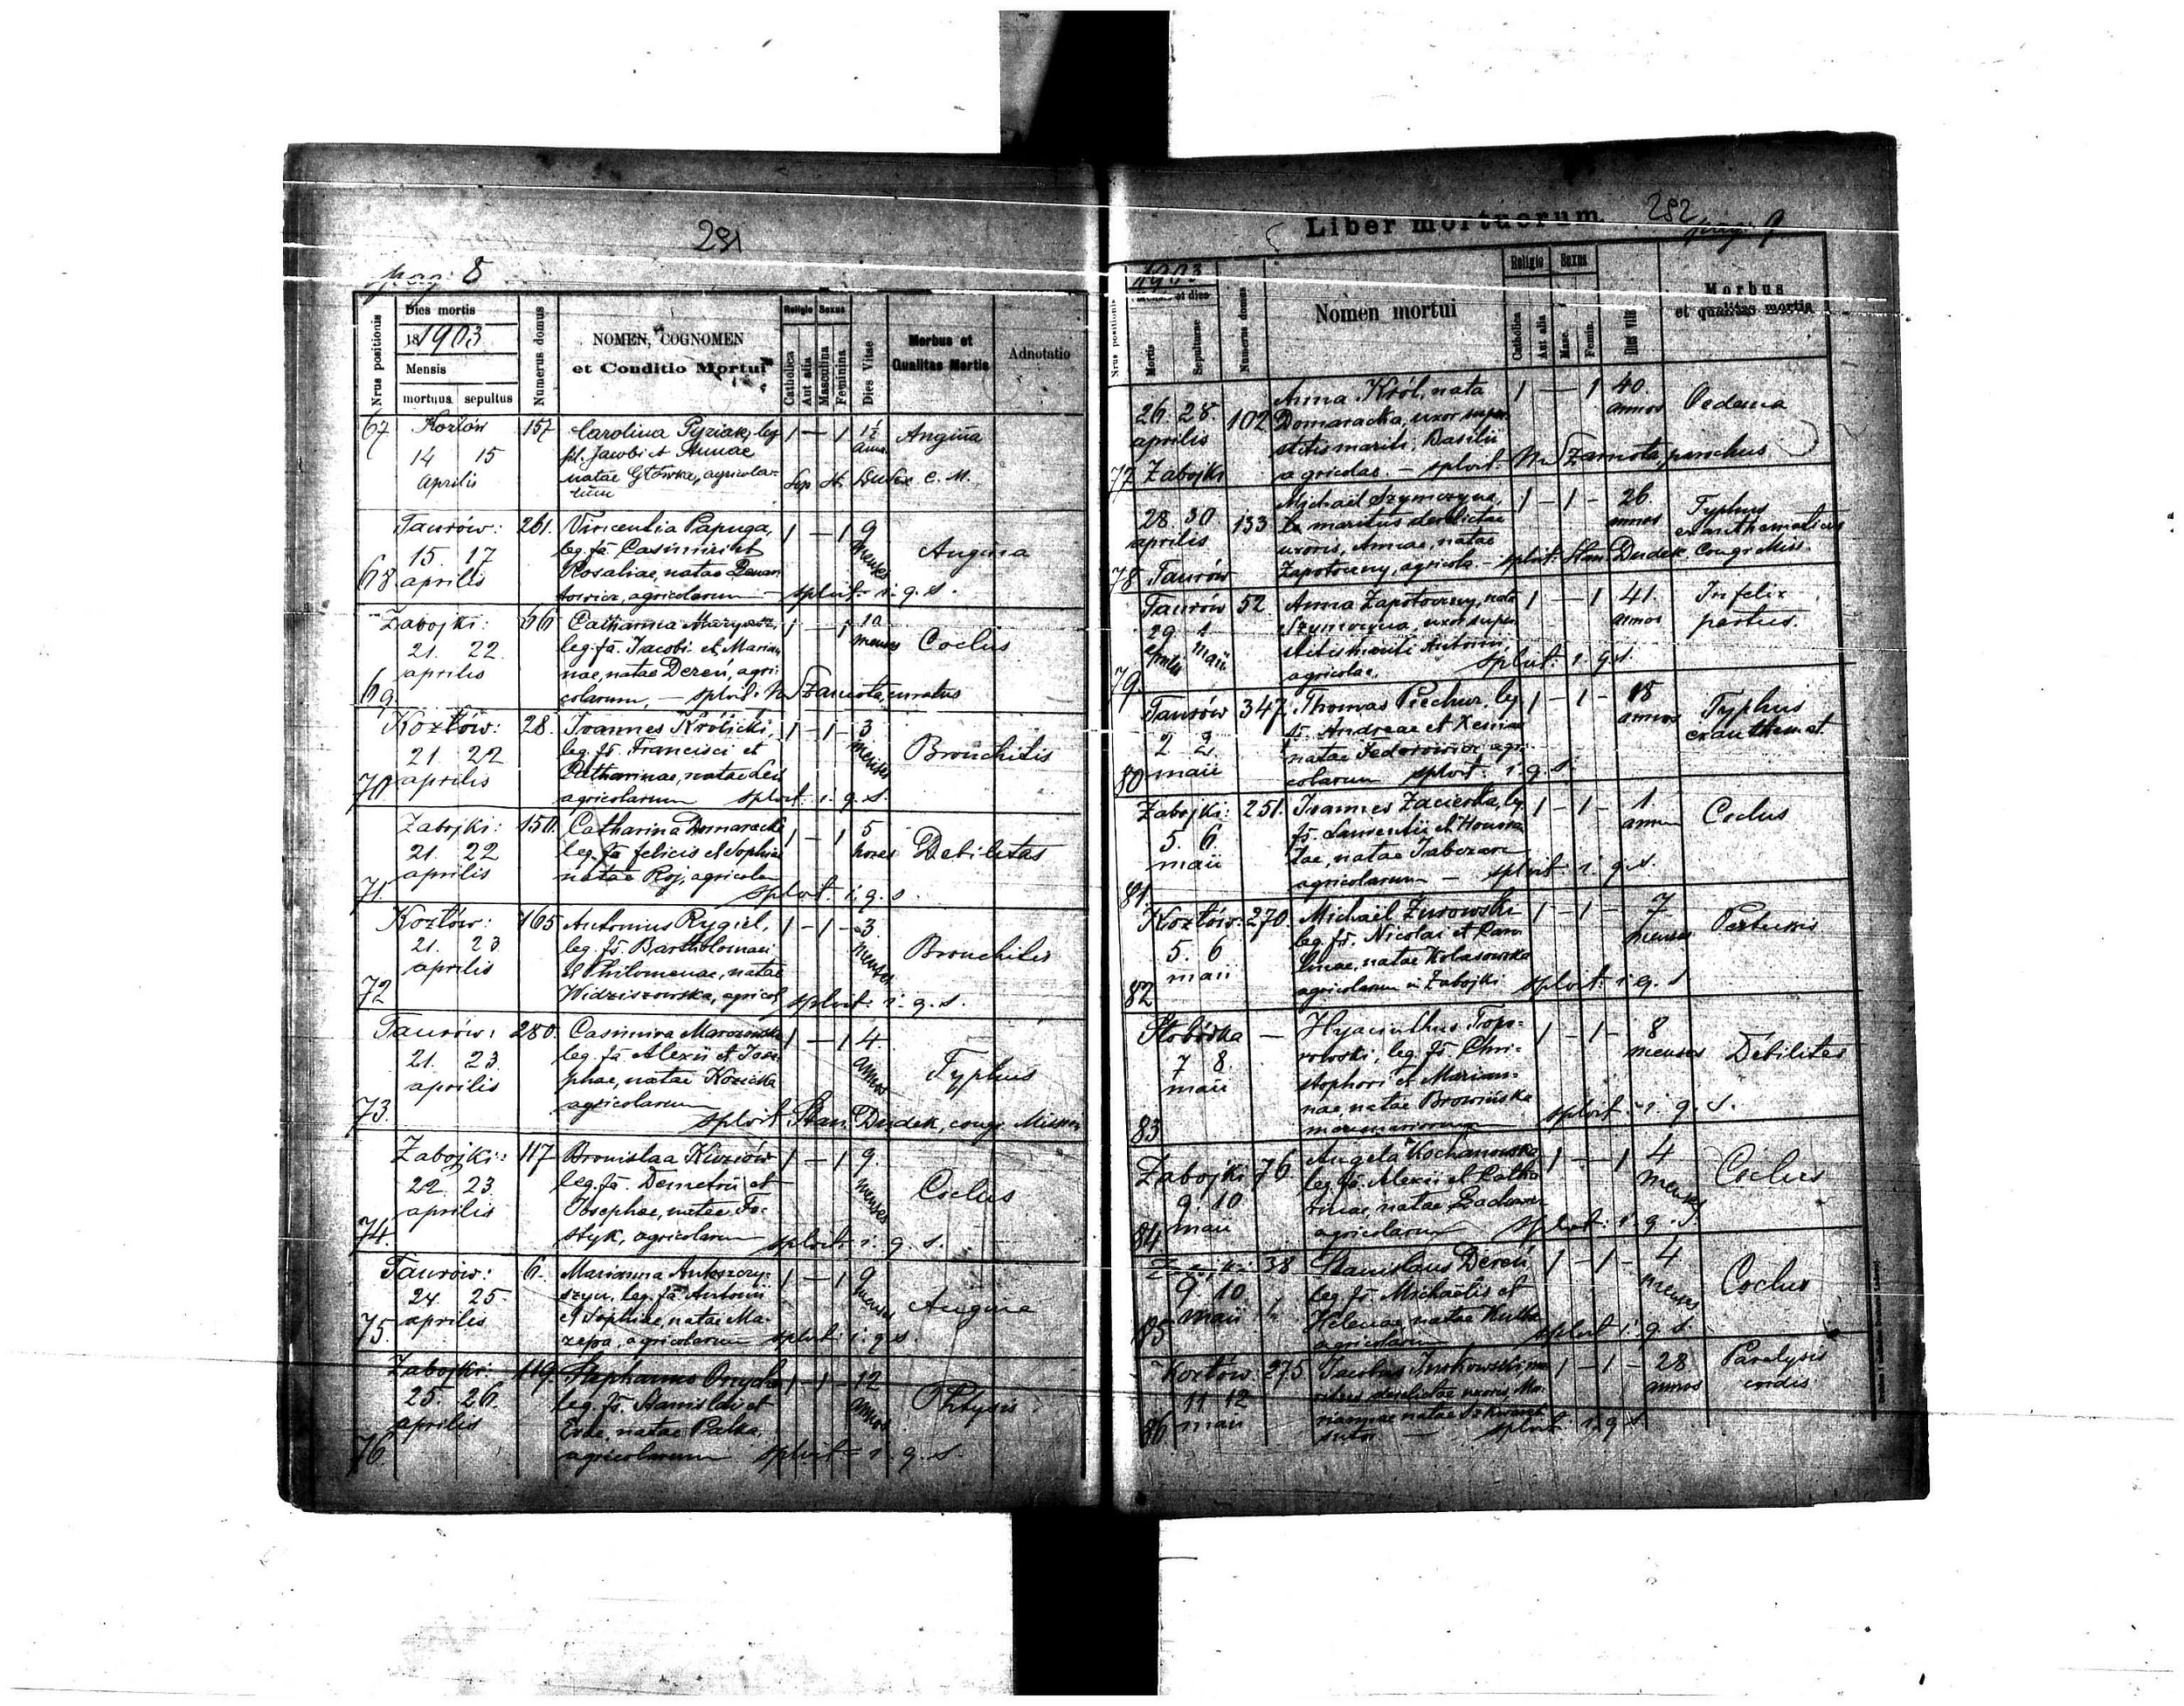 291
pag: 8
Nrus positionis
Dies mortis
181903
Mensis
mortuus sepultus
Numerus domus
NOMEN, COGNOMEN
et Conditio Mortui
Religio Sexus
Catholica
Aut alia
Masculina
Feminina
Dies Vitae
Morbus et
Qualitas Mortis
Adnotatio
67 Kozłów 157 Carolina Pyziak, leg 1 — 1 1½ Angina
fil. Jacobi et Annae
14 15 natae Główka, agricola- Sep. St. Dudek C. M.
aprilis rum
Taurów: 261. Vincentia Papuga, 1 — 1 9
leg. fa Casimiri et menses Angina
15. 17 Rosaliae, natae
68. aprilis agricolarum — splvit. i. q. s.
Zabojki: 66 Catharina 1 — 1 10
21. 22. leg. fa. Jacobi et Marian menses Coclus
aprilis nae, natae Dereń, agri-
69. colarum, — splvit: Szamota, curatus
Kozłów: 28. Joannes Królicki, 1 — 1 — 3
21 22 leg. fs. Francisci et menses Bronchitis
aprilis Catharinae, natae
70. agricolarum splvit. i. q. s.
Zabojki: 150. Catharina Domaracka 1 — 1 5
21. 22 leg. fa felicis et Sophiae horas Debilitas
aprilis natae Roj, agricolar
71. splvit. i. q. s.
Kozłów: 165 Antonius Rygiel, 1 — 1 — 3.
21. 23. leg. fs. Bartholomaei menses Bronchitis
aprilis et Philomenae, natae
72 Widziszowska, agricol splvit. i. q. s.
Taurów: 280. Casimira 1 — 1 4.
21. 23. leg. fa Alexii et Jose- annos Typhus
aprilis phae, natae Kozicka
agricolarum
73. splvit Stan. Dudek, congr. Mission
Zabojki: 117 Bronislaa 1 — 1 9.
22. 23. leg. fa. Demetrii et menses Coclus
aprilis Josephae, natae Fo-
74. styk, agricolarum splvit. i. q. s.
Taurów: 6. Marianna Antoszczy- 1 — 1 9
24. 25. szyn, leg. fa Antonii menses Angina
aprilis et Sophiae, natae Ma-
75. zepa, agricolarum splvit. i. q. s.
Zabojki: 119. Stephanus 1 — 1 — 12
25. 26. leg. fs. Stanislai et annos Phtysis
aprilis Evae, natae Palka,
76. agricolarum splvit i. q. s.
Liber mortuorum. 292
pag. 9
Nrus positionis
1903
Mensis et dies
Mortis
Sepulturae
Numerus domus
Nomen mortui
Religio Sexus
Catholica
Aut alia
Masc.
Femin.
Dies Vitae
Morbus
et qualitas mortis
Anna Król, nata 1 — — 1 40. Oedema
26. 28. 102 Domaracka, uxor super- annos
aprilis stitis mariti, Basilii
77 Zabojki agricolae. — splvit. Szamota, parochus
Michael Szymczyna, 1 — 1 — 26. Typhus
28. 30. 133 maritus derelictae annos exanthematicus
aprilis uxoris, Annae, natae
78 Taurów Zapotoczny, agricola — splvit. Stan. Dudek. Congr Miss.
Taurów 52. Anna Zapotoczny, nata 1 — — 1 41. Infelix
29 1 Szymczyna, uxor super- annos partus.
aprilis maii stitis mariti Antonii,
79. agricolae. splvit. i. q. s.
Taurów 347. Thomas Piechur, leg 1 — 1 — 18 Typhus
2 2. fs. Andreae et annos exanthemat.
maii natae Fedorowicz agri-
80 colarum splvit. i. q. s.
Zabojki: 251. Joannes Zacierka, leg 1 — 1 — 1. Coclus
5. 6. fs. Laurentii et Honora- annum
maii tae, natae
81. agricolarum — splvit. i. q. s.
Kozłów: 270. Michael Żurowski 1 — 1 — 7 Pertussis
5. 6 leg. fs. Nicolai et Caro- menses
maii linae, natae Kolasowska
82 agricolarum in Zabojki splvit. i. q. s
Słobódka — Hyacinthus Topo- 1 — 1 — 8
7 8. rowski, leg. fs. Chri- menses Debilitas
maii stophori et Marian-
nae, natae Browińska splvit. i. q. s.
83
Zabojki 76 Angela Kochanowska 1 — 1 4 Coclus
9. 10 leg. fa. Alexii et Catha- menses
maii rinae, natae
84 agricolarum splvit. i. q. s.
38 Stanislaus Dereń 1 — 1 — 4 Coclus
9 10. leg. fs. Michaelis et menses
maii Helenae, natae
85 agricolarum splvit i. q. s.
Kozłów 275 Jacobus ma- 1 — 1 — 28. Paralysis
11 12 ritus derelictae uxoris, Ma- annos cordis
maii riannae natae
86 sutor — splvit. i. q. s.